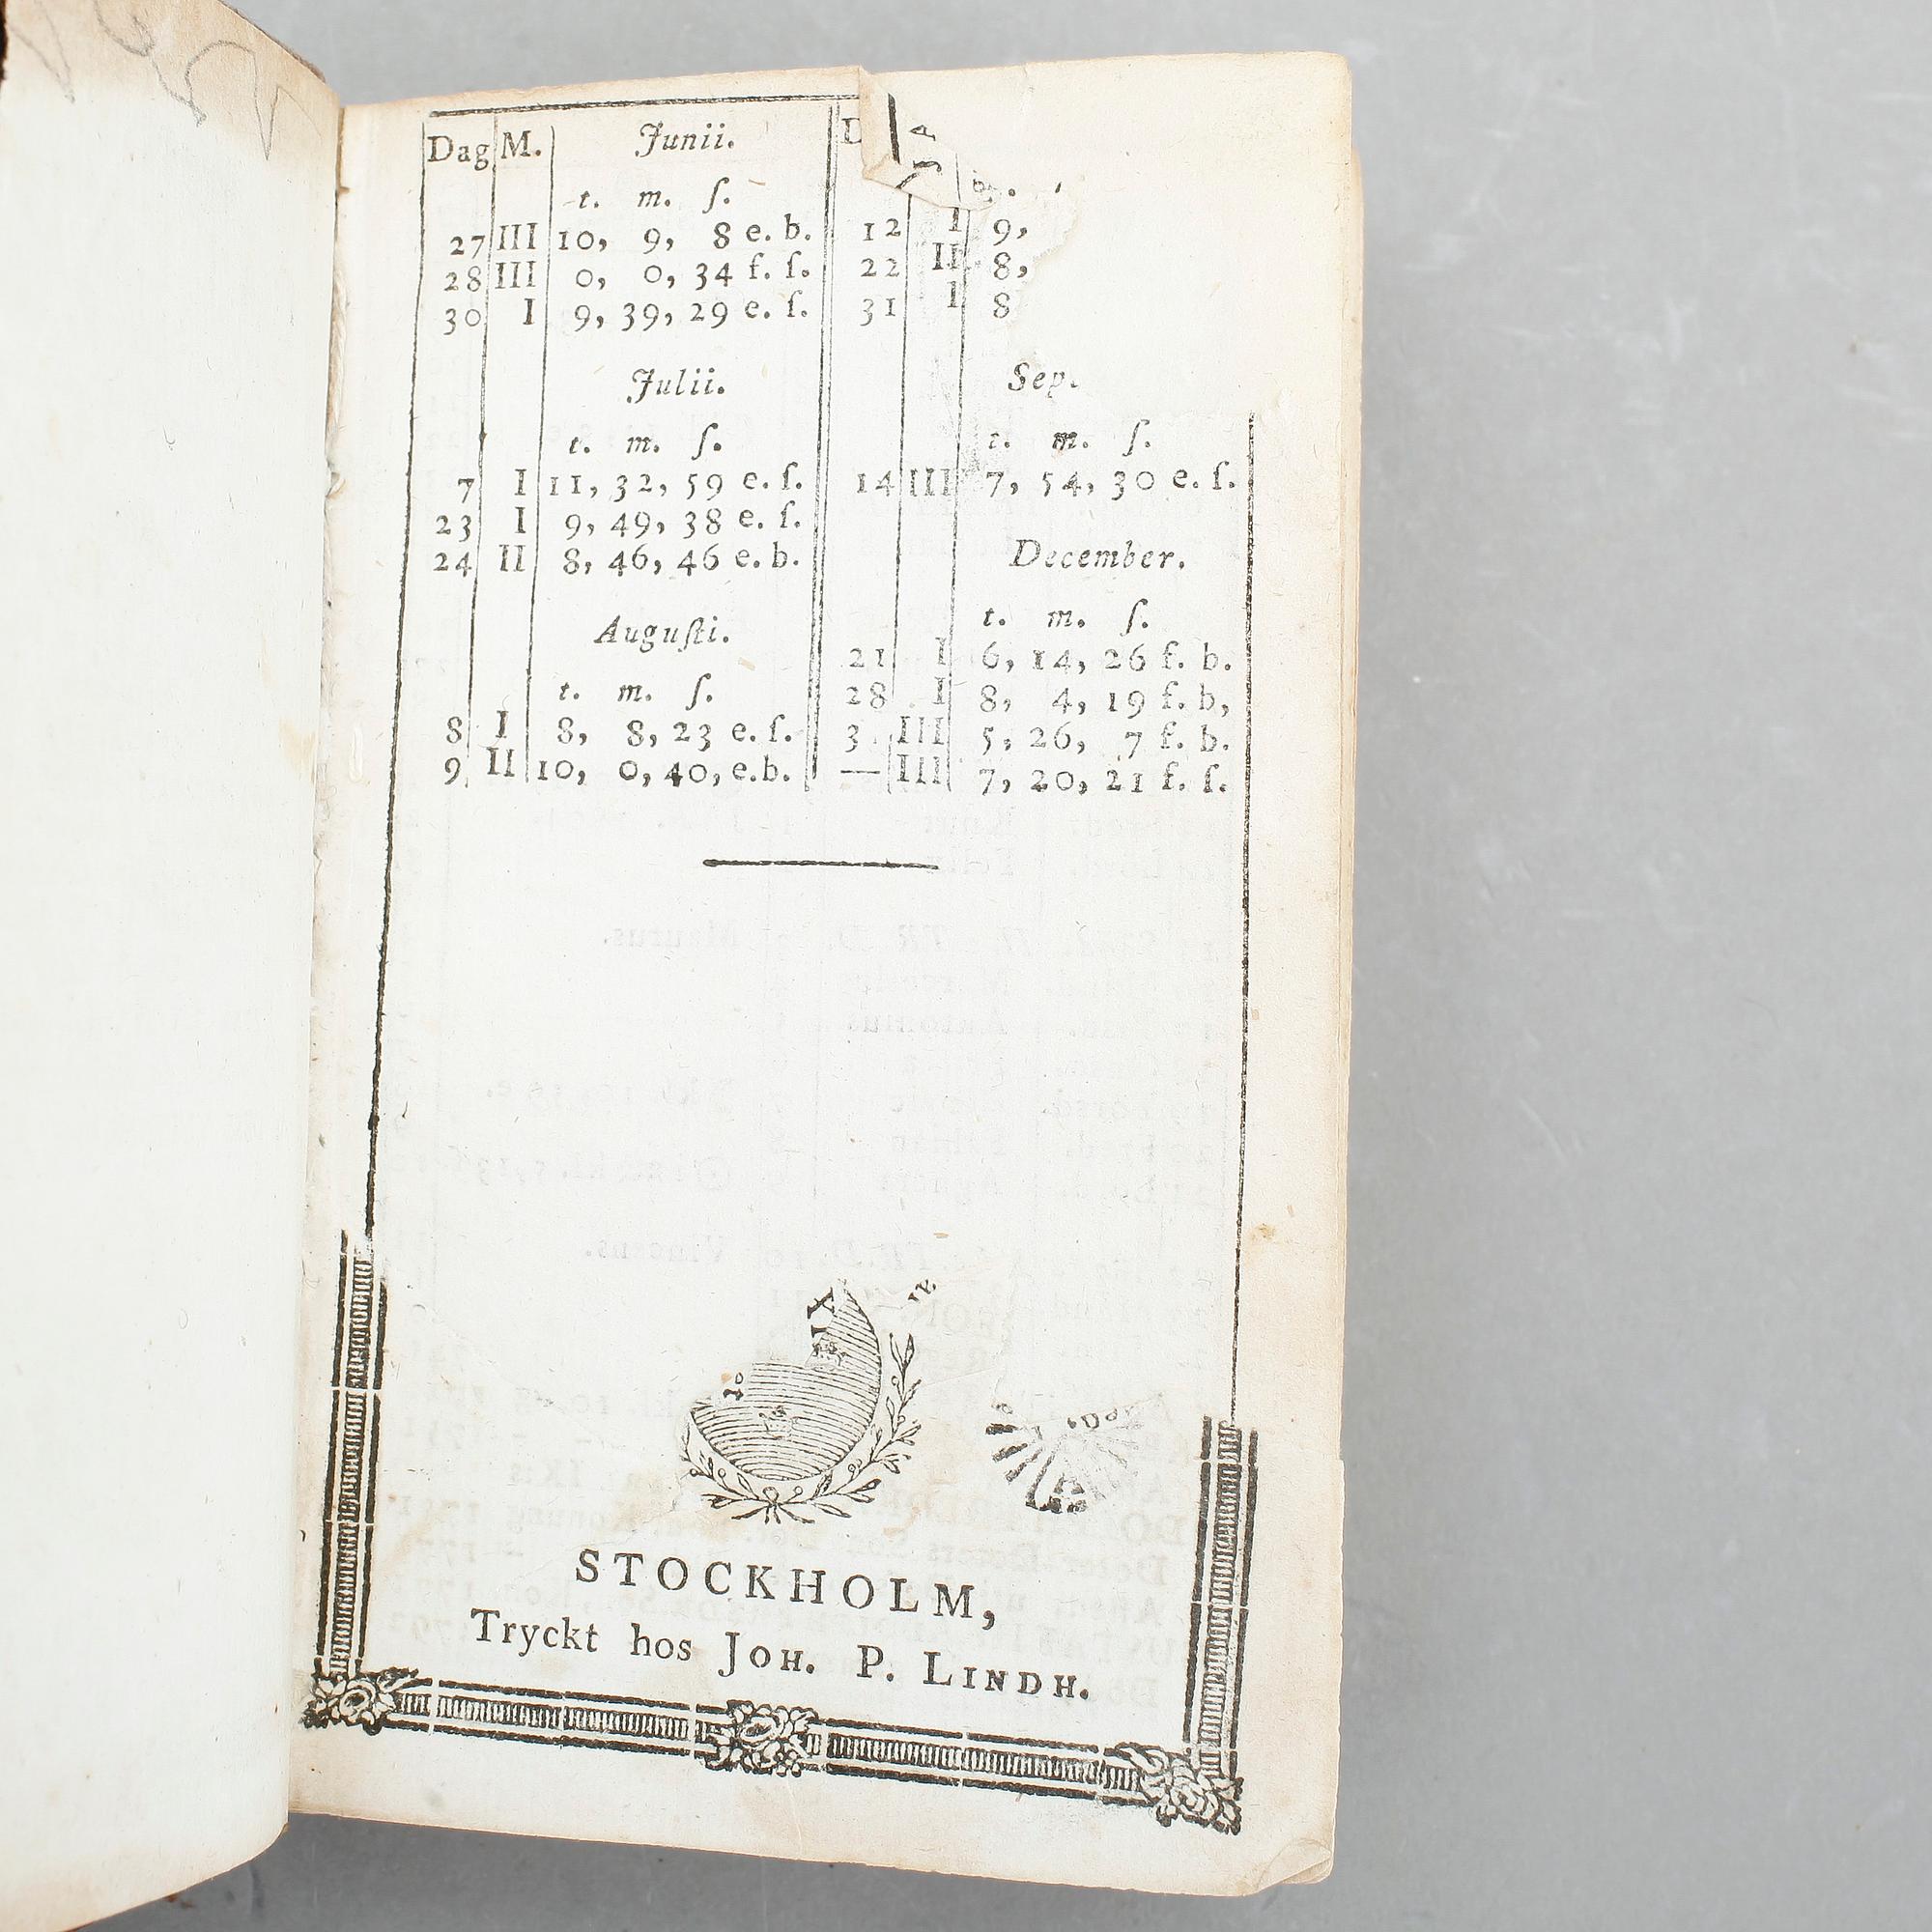 Dag M. Junii.
t. m. ſ.
27 III 10, 9, 8 e. b.
28 III 0, 0, 34 f. ſ.
30 I 9, 39, 29 e. ſ.
Julii.
t. m. ſ.
7 I 11, 32, 59 e. ſ.
23 I 9, 49, 38 e. ſ.
24 II 8, 46, 46 e. b.
Auguſti.
t. m. ſ.
8 I 8, 8, 23 e. ſ.
9 II 10, 0, 40, e. b.
12 I 9,
22 II 8,
31 I 8
Sep.
t. m. ſ.
14 III 7, 54, 30 e. ſ.
December.
t. m. ſ.
21 I 6, 14, 26 f. b.
28 I 8, 4, 19 f. b,
3 III 5, 26, 7 f. b.
— III 7, 20, 21 f. ſ.
STOCKHOLM,
Tryckt hos JOH. P. LINDH.